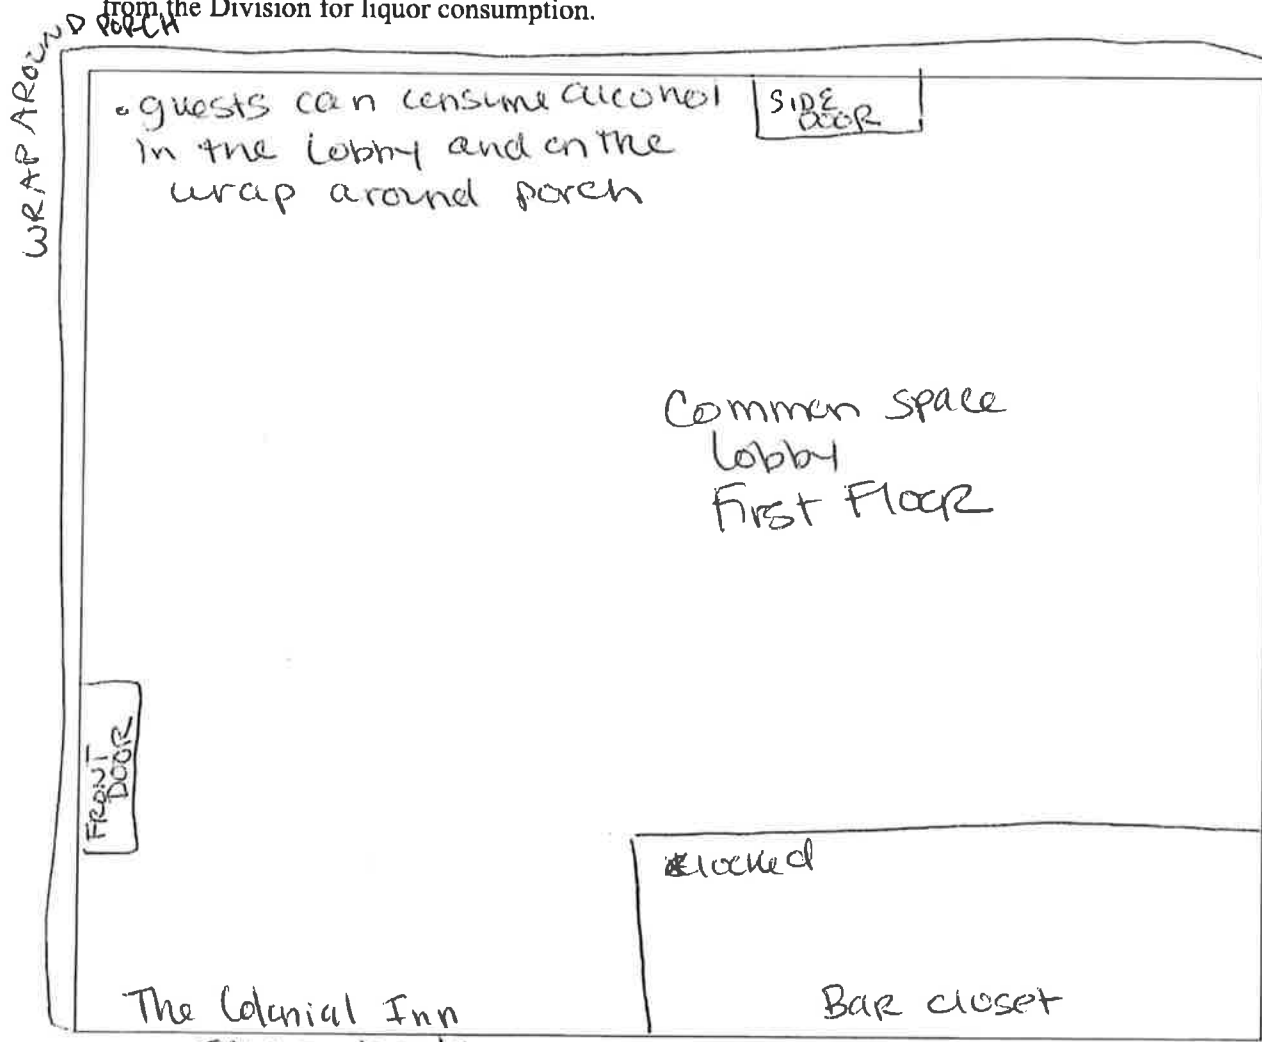 from the Division for liquor consumption.
WRAP AROUND PORCH
• guests can consume alcohol
in the lobby and on the
wrap around porch
SIDE
DOOR
Common space
Lobby
First Floor
FRONT
DOOR
*locked
Bar closet
The Colonial Inn